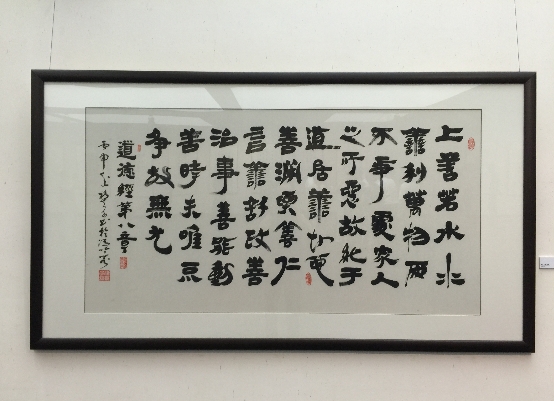 上善若水水
善利萬物而
不爭處众人
之所惡故幾于
道居善地心
善渊與善仁
言善信政善
治事善能動
善時夫唯不
争故無尤
道德經第八章
丙申